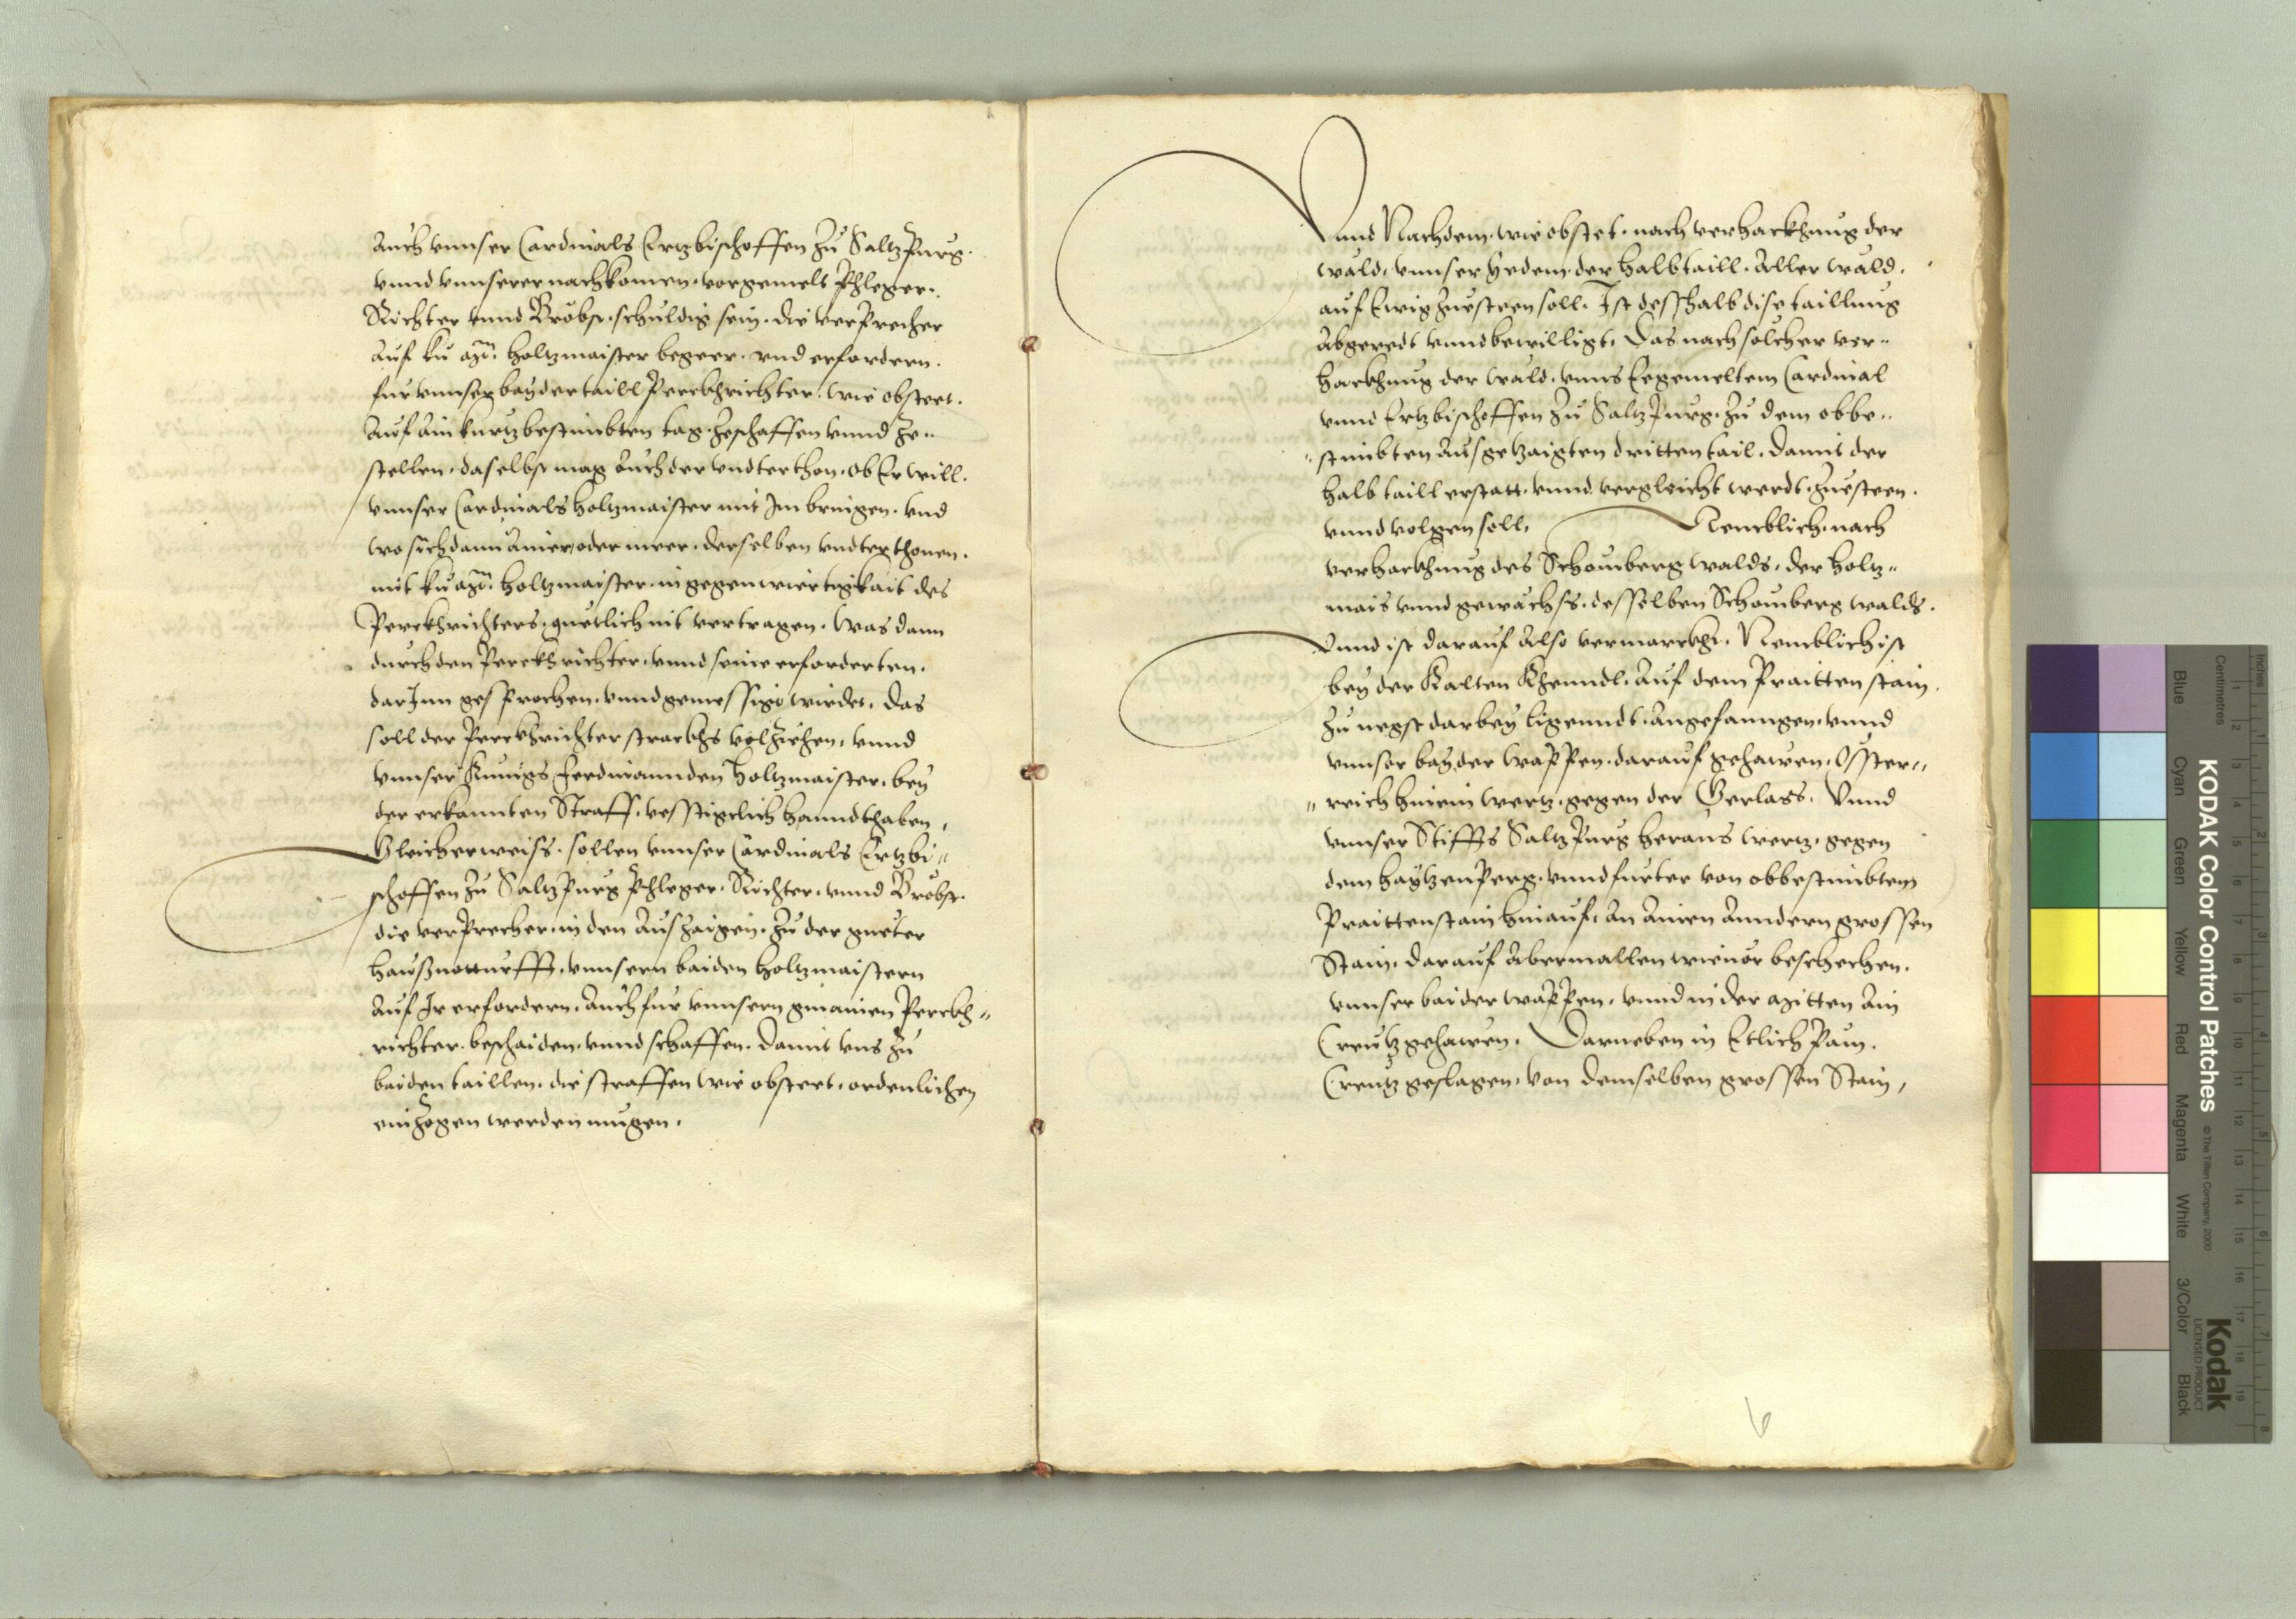 Auch vnnser Cardinals Ertzbischoffen zu Saltzpurg.
vnnd vnnserer nachkomen. vorgemelt Phleger.
Richter vnnd Bröbst. schuldig sein. die verprecher
auf ku. Mt. holtzmaister begeer. vnd erfordern.
fur vnnser bayder taill Perckhrichter. wie obsteet.
Auf ain kurtz bestimbten tag. zeschaffen vnnd ze„
stellen. daselbst mag auch der vndterthon. ob Er will.
vnnser Cardinals holtzmaister mit Im bringen. vnd
wo sich dann ainer oder meer. derselben vndterthonen.
mit ku. Mt. holtzmaister. in gegenwiertigkait des
Perckhrichters. guetlich nit vertragen. Was dann
durch den Perckhrichter. vnnd seine erforderten.
darInn gesprochen. vnnd gemessigt wirdet. das
soll der Perckhrichter strackhs volziehen. vnnd
vnnser Kunigs Ferdinannden Holtzmaister. bey
der erkannten Straff. vesstigclich hanndthaben.
Gleicherweiss. sollen vnnser Cardinals Ertzbi„
schoffen zu Saltzpurg Phleger. Richter. vnnd Bröbst.
die verprecher. in den Auszaigen. zu der gueter
haußnotturfft. vnnsern baiden holtzmaistern
Auf Ir erfordern. Auch fur vnnsern gmainen Perckh„
richter. beschaiden. vnnd schaffen. damit vns zu
baiden taillen. die straffen wie obsteet. ordenlichen
einzogen werden mugen.
Vnnd Nachdem. wie obstet. nach verhackhnug der
wäld. vnnser yedem. der halb taill. Aller wäld.
auf Ewig zuesteen soll. Ist desshalb dise taillung
Abgeredt vnnd bewilligt. Das nach solcher ver„
hackhnug der wäld. vnns Eegemeltem Cardinal
vnnd Ertzbischoffen zu Saltzpurg. zu dem obbe„
„stimbten Ausgetzaigten dritten tail. damit der
halb taill erstatt. vnnd vergleicht werdt. zuesteen.
vnnd volgen soll. Nemblich. nach
verhackhnug des Schomberg walds. der holtz„
mais vnnd gewächss. desselben Schomberg walds.
Vnnd ist darauf Also vermarckht. Nemblich ist
bey der Kalten Khenndl. Auf dem Praitten stain.
zu negst darbey ligenndt. Angefanngen. vnnd
vnnser bayder wappen. darauf gehawen. Osster„
„reich hinein wertz. gegen der Gerlass. Vnnd
vnnser Stiffts Saltzpurg heraus wertz. gegen
dem haytzenperg. vnnd furter von obbestimbtem
Praittenstain hinauf. An ainen Anndern grossen
Stain. darauf Abermallen wieuor beschechen.
vnnser baider wappen. vnnd in der mitten Ain
Creutz gehawen. Darneben in Etlich Pam.
Creutz geslagen. von demselben grossen Stain,
6
KODAK Color Control Patches
© The Tiffen Company, 2000
Kodak
LICENSED PRODUCT
Inches
Centimetres
Blue
Cyan
Green
Yellow
Red
Magenta
White
3/Color
Black